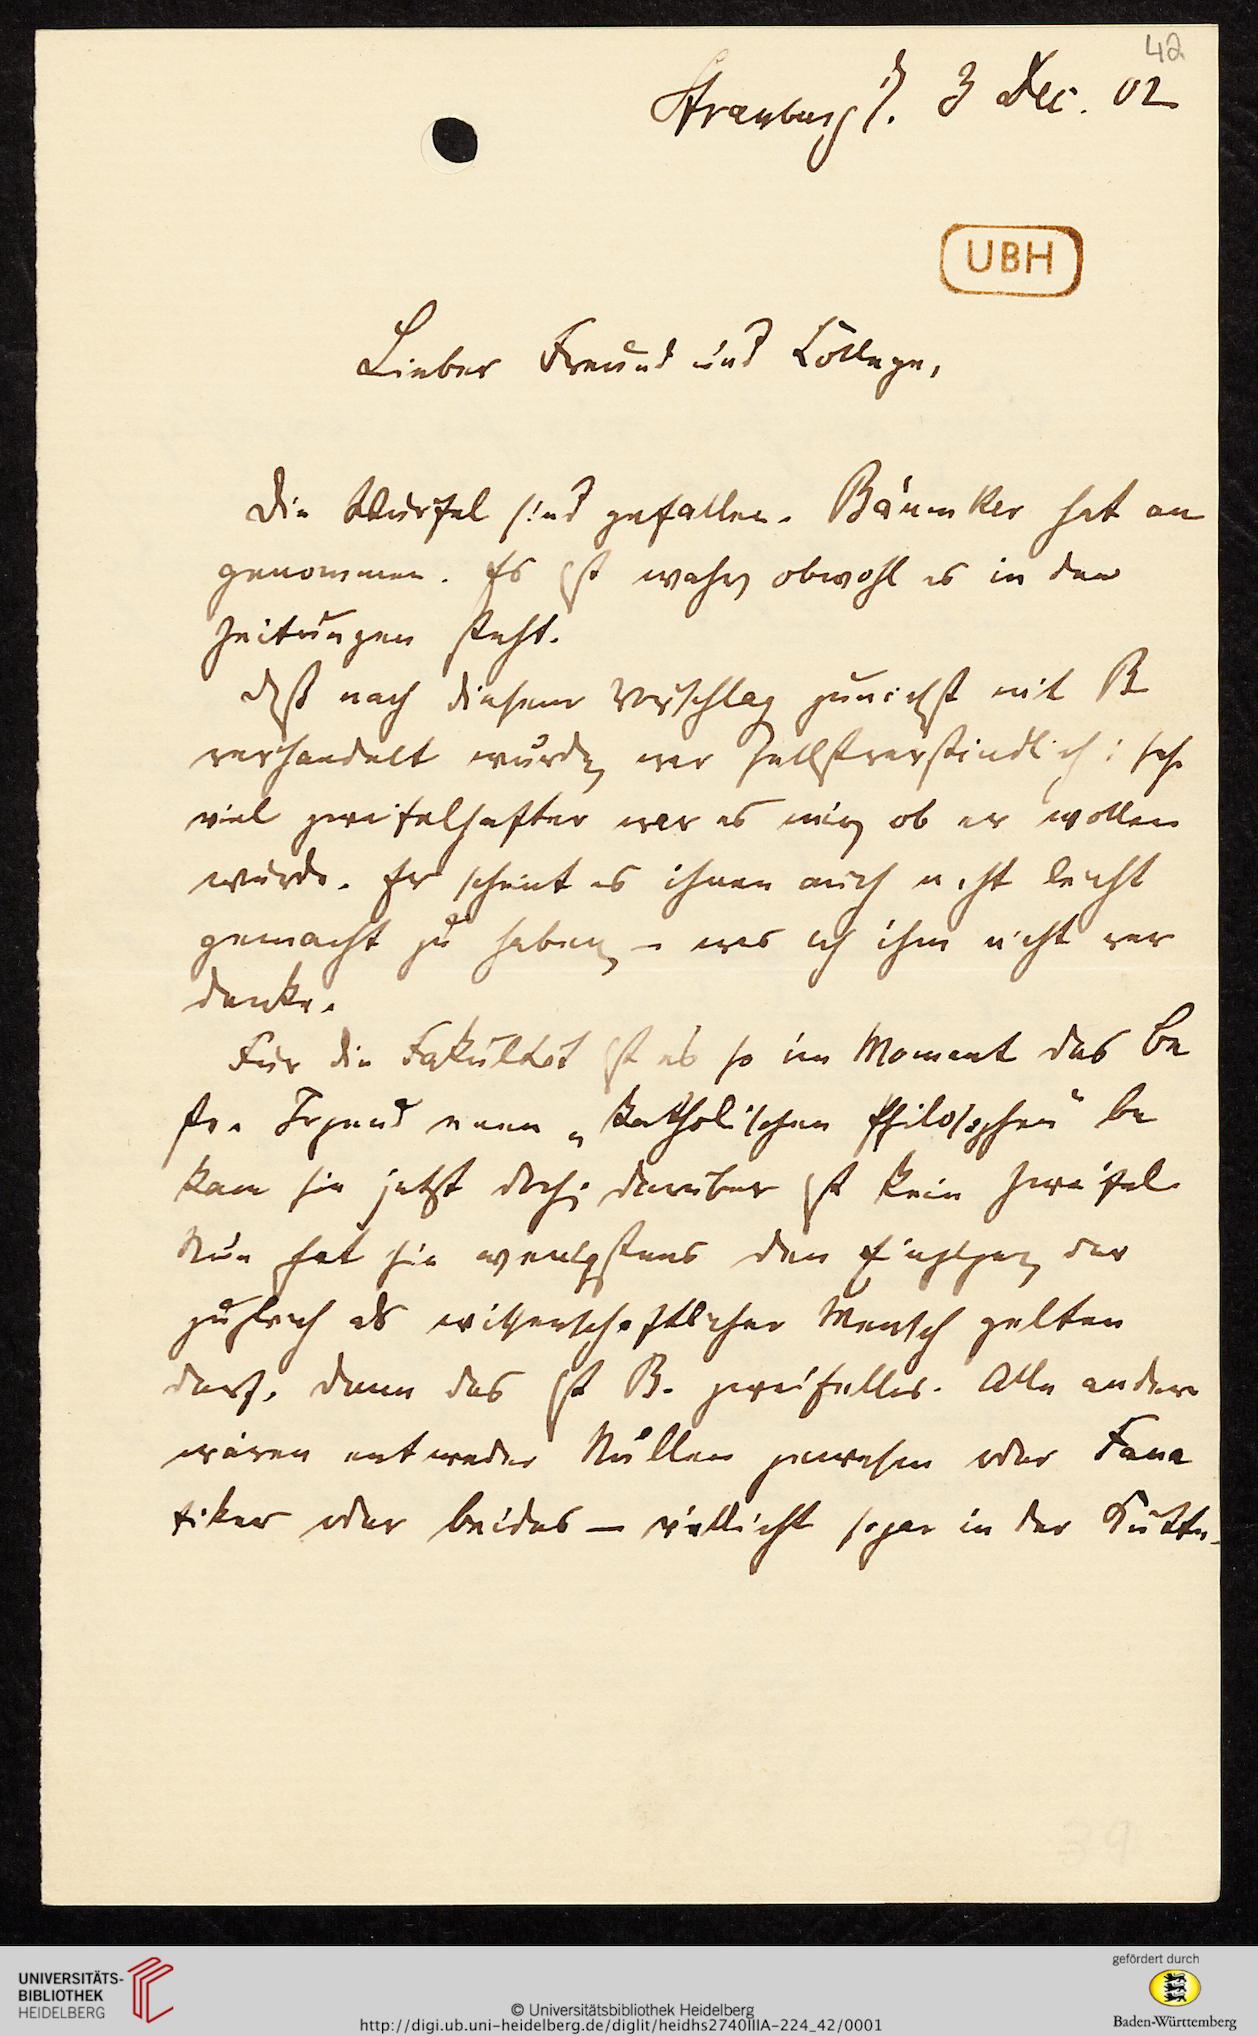 42
Strassburg 3 Dec. 02
UBH
Lieber Freund und College,
Die Würfel sind gefallen. Bäumker hat an
genommen. Es ist wahr, obwohl es in den
Zeitungen steht.
Daß nach diesem Vorschlag zunächst mit B
verhandelt wurde, war selbstverständlich; sehr
viel zweifelhafter war es mir, ob er wollen
würde. Er scheint es ihnen auch nicht leicht
gemacht zu haben, – was ich ihm nicht ver
denke.
Für die Fakultät ist es so im Moment das Be
ste. Irgend einen „katholischen Philosophen“ be
kam sie jetzt doch; darüber ist kein Zweifel.
Nun hat sie wenigstens den Einzigen, der
zugleich als wissenschaftlicher Mensch gelten
darf. Denn das ist B. zweifellos. Alle andern
wären entweder Nullen gewesen oder Fana
tiker oder beides — vielleicht sogar in der Kutte.
UNIVERSITÄTS-
BIBLIOTHEK
HEIDELBERG
© Universitätsbibliothek Heidelberg
http://digi.ub.uni-heidelberg.de/diglit/heidhs2740IIIA-224_42/0001
gefördert durch
Baden-Württemberg